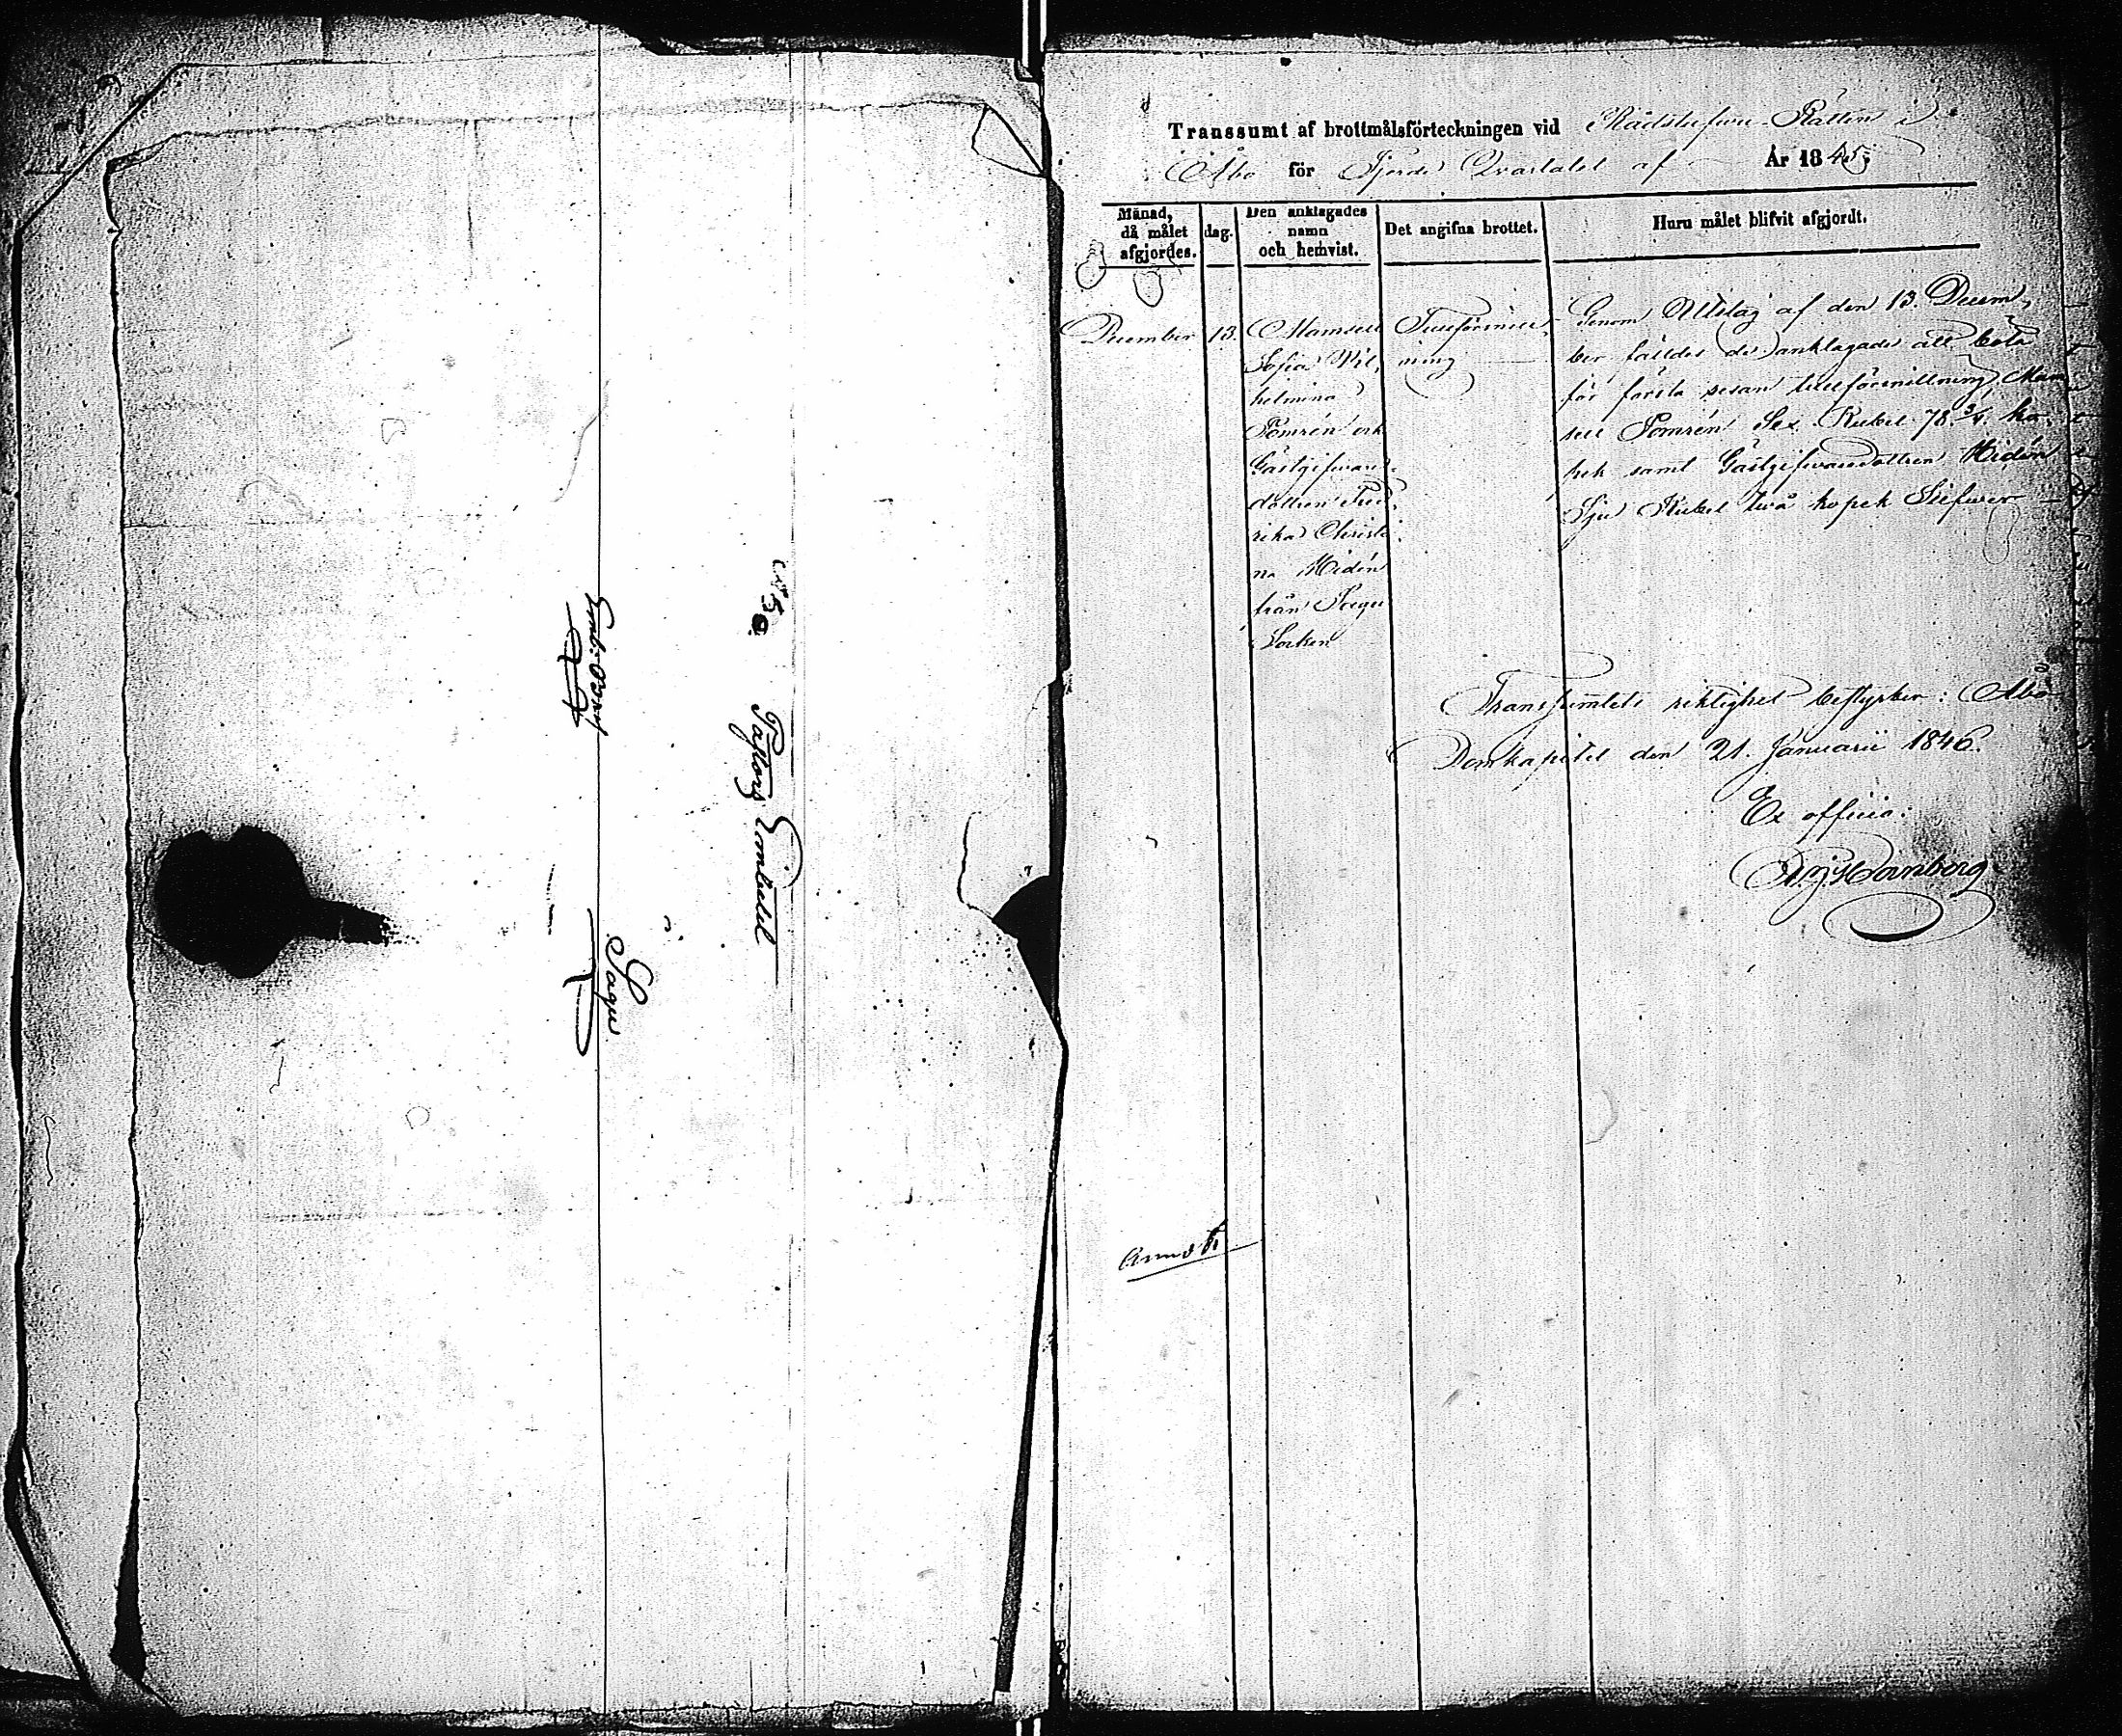 Pastors Embetet
Sagu
Transsumt af brottmålsförteckningen vid Rådstufvu-Rätten i
Åbo för Fjerde Qvartalet af År 1845.
Månad, då målet afgjordes.
dag.
Den anklagades namn och hemvist.
Det angifna brottet.
Huru målet blifvit afgjordt.
December
13.
Mamsell
Sofia Wil,
helmina
Pomrén och
Gästgifvare-
dottren Fred,
rika Christi,
na Widén
från
Socken
Tullförsnill,
ning
Genom Utslag af den 13. Decem,
ber fälldes de anklagade att böta
för första resan tullförsnillning, Mam
sell Pomrén Sex Rubel 78 3/4. ko,
pek samt Gästgifvaredottren Widén
Sju Rubel två kopek Silfver
Transsumtets riktighet bestyrker: Åbo
Domkapitel den 21. Januarii 1846.
Ex officio: